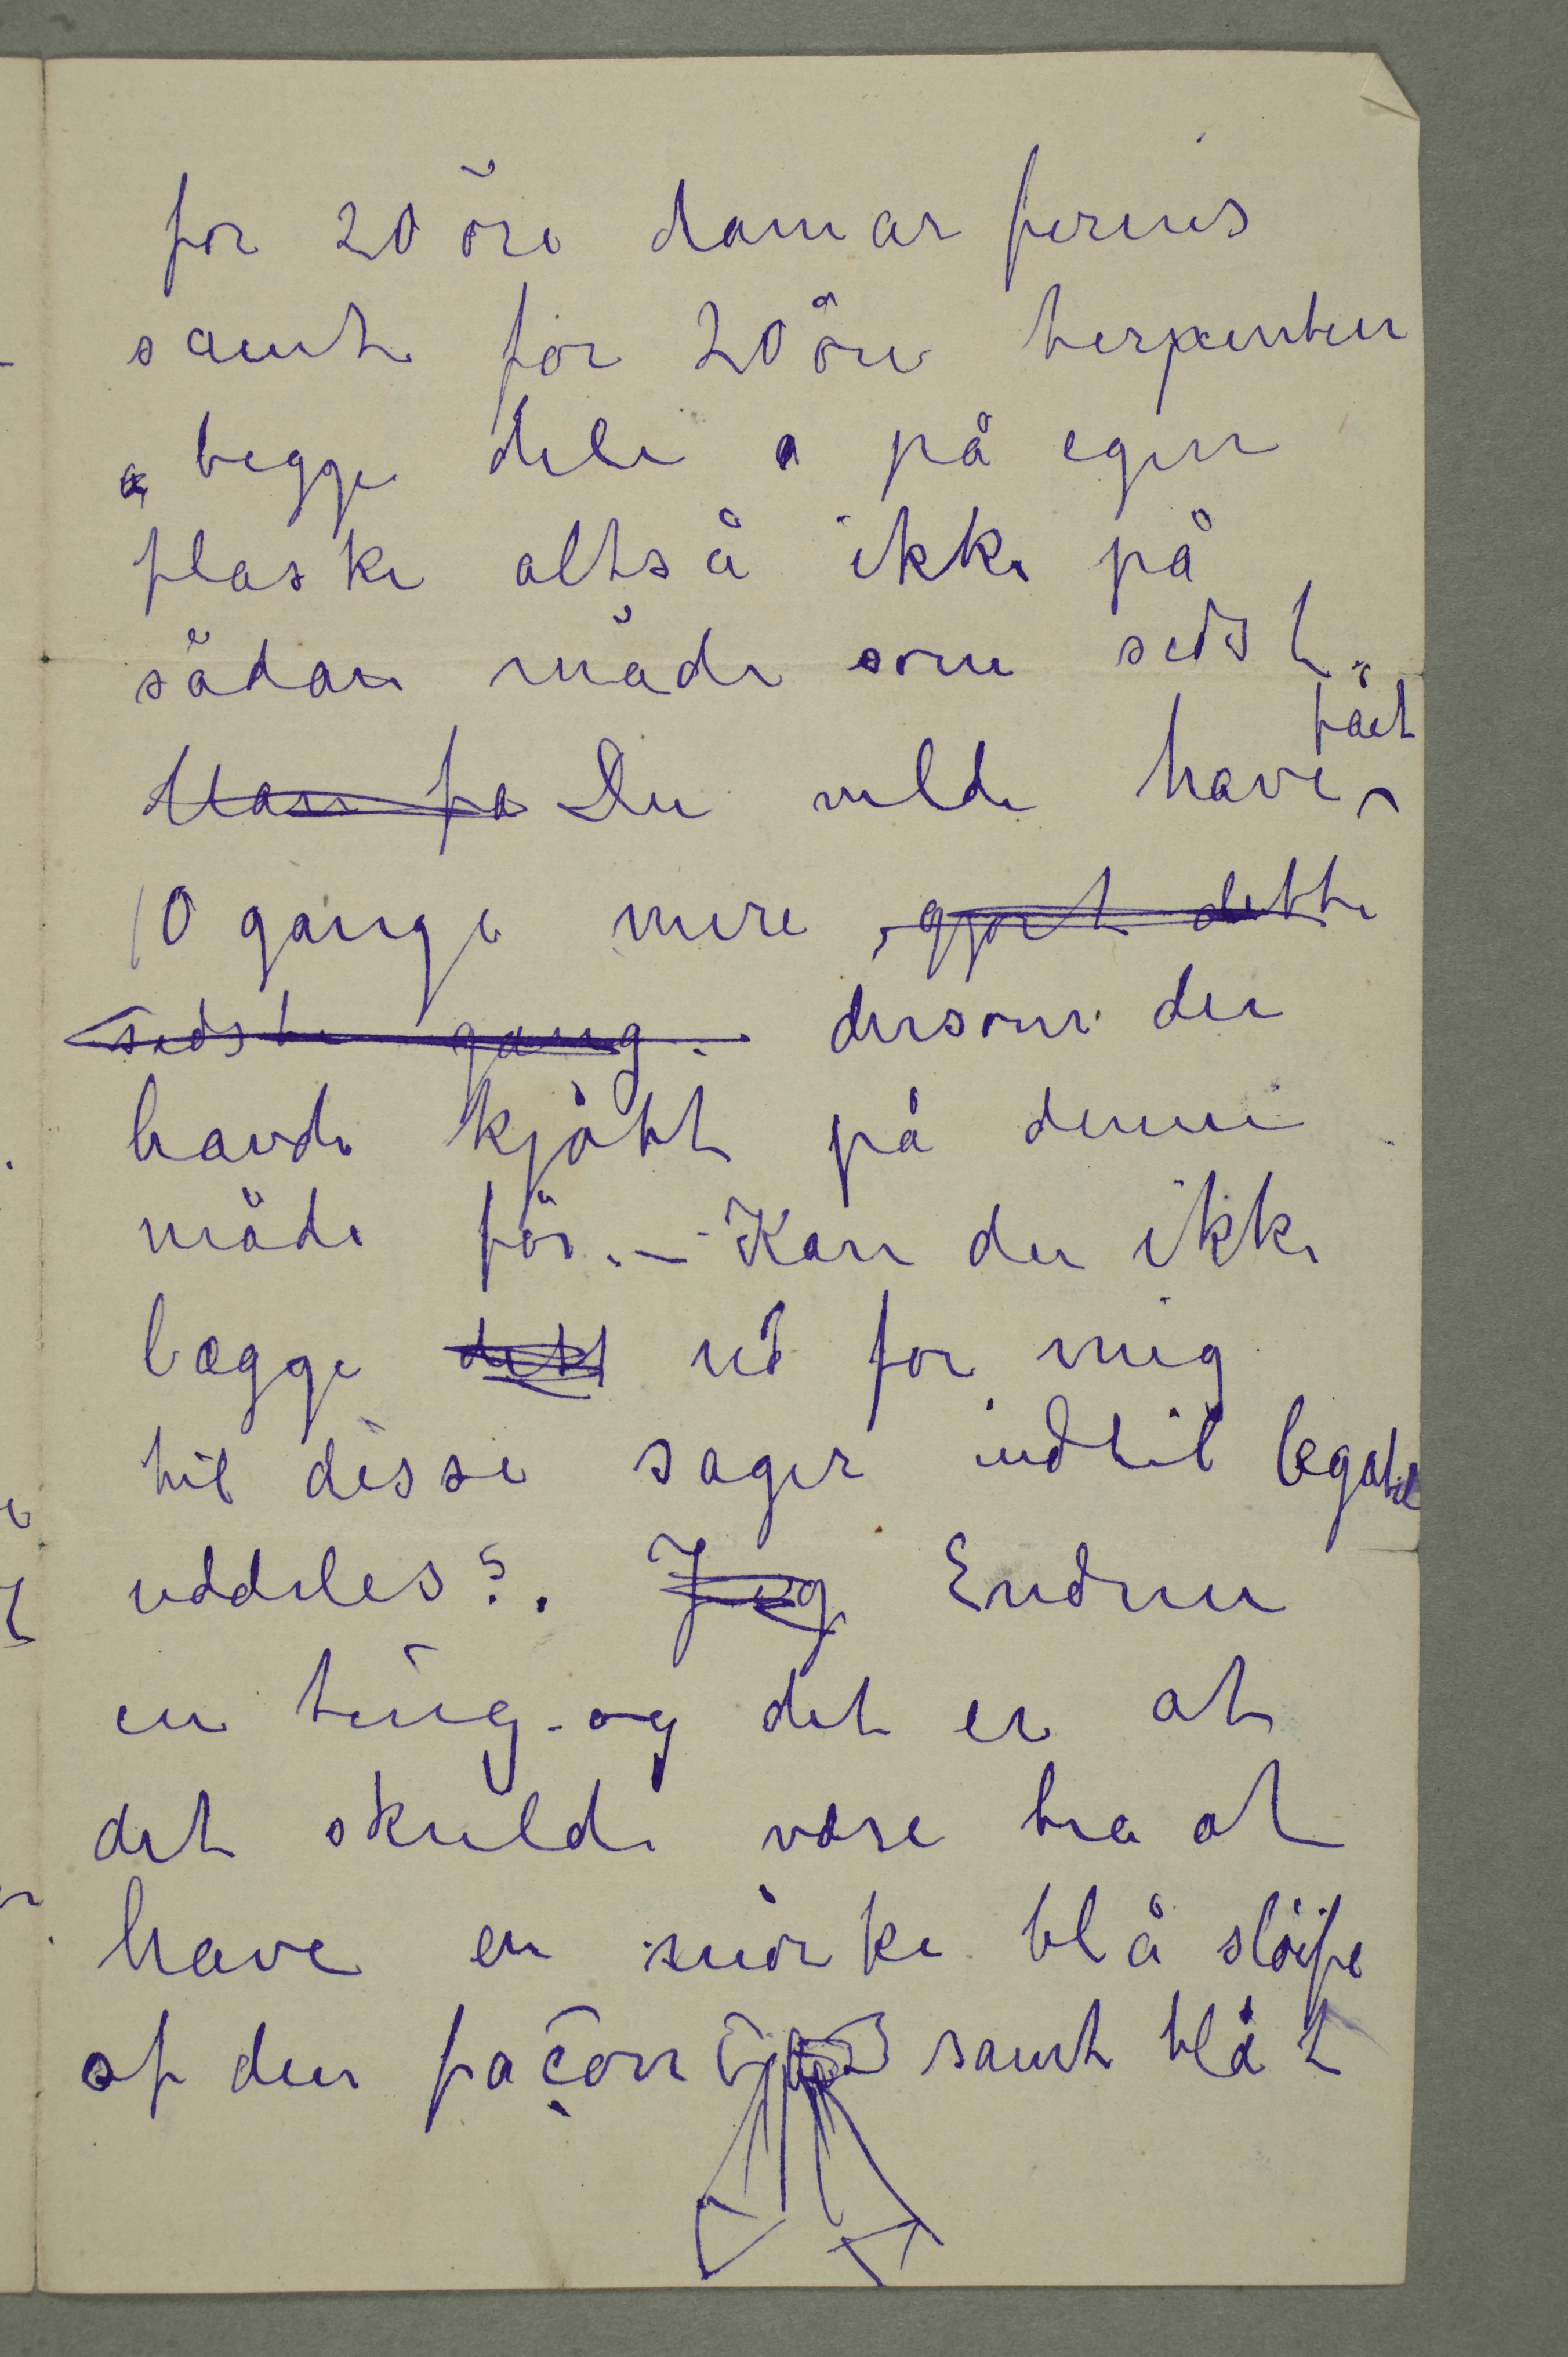 for 20 öre damar fernis
samt for 20 öre terpenten
begge dele på egen
flaske altså ikke på
sådan måde som sidst.
Man fa Du vilde have fået
10 gange mere, gjort dette
sidste gang. dersom du
havde kjöbt på denne
måde för. – Kan du ikke
lægge ud for mig
til disse sager indtil legatet
uddeles?. Jeg Endnu
en ting – og det er at
det skulde være bra at
have en mörke blå slöife
af den façon samt blåt